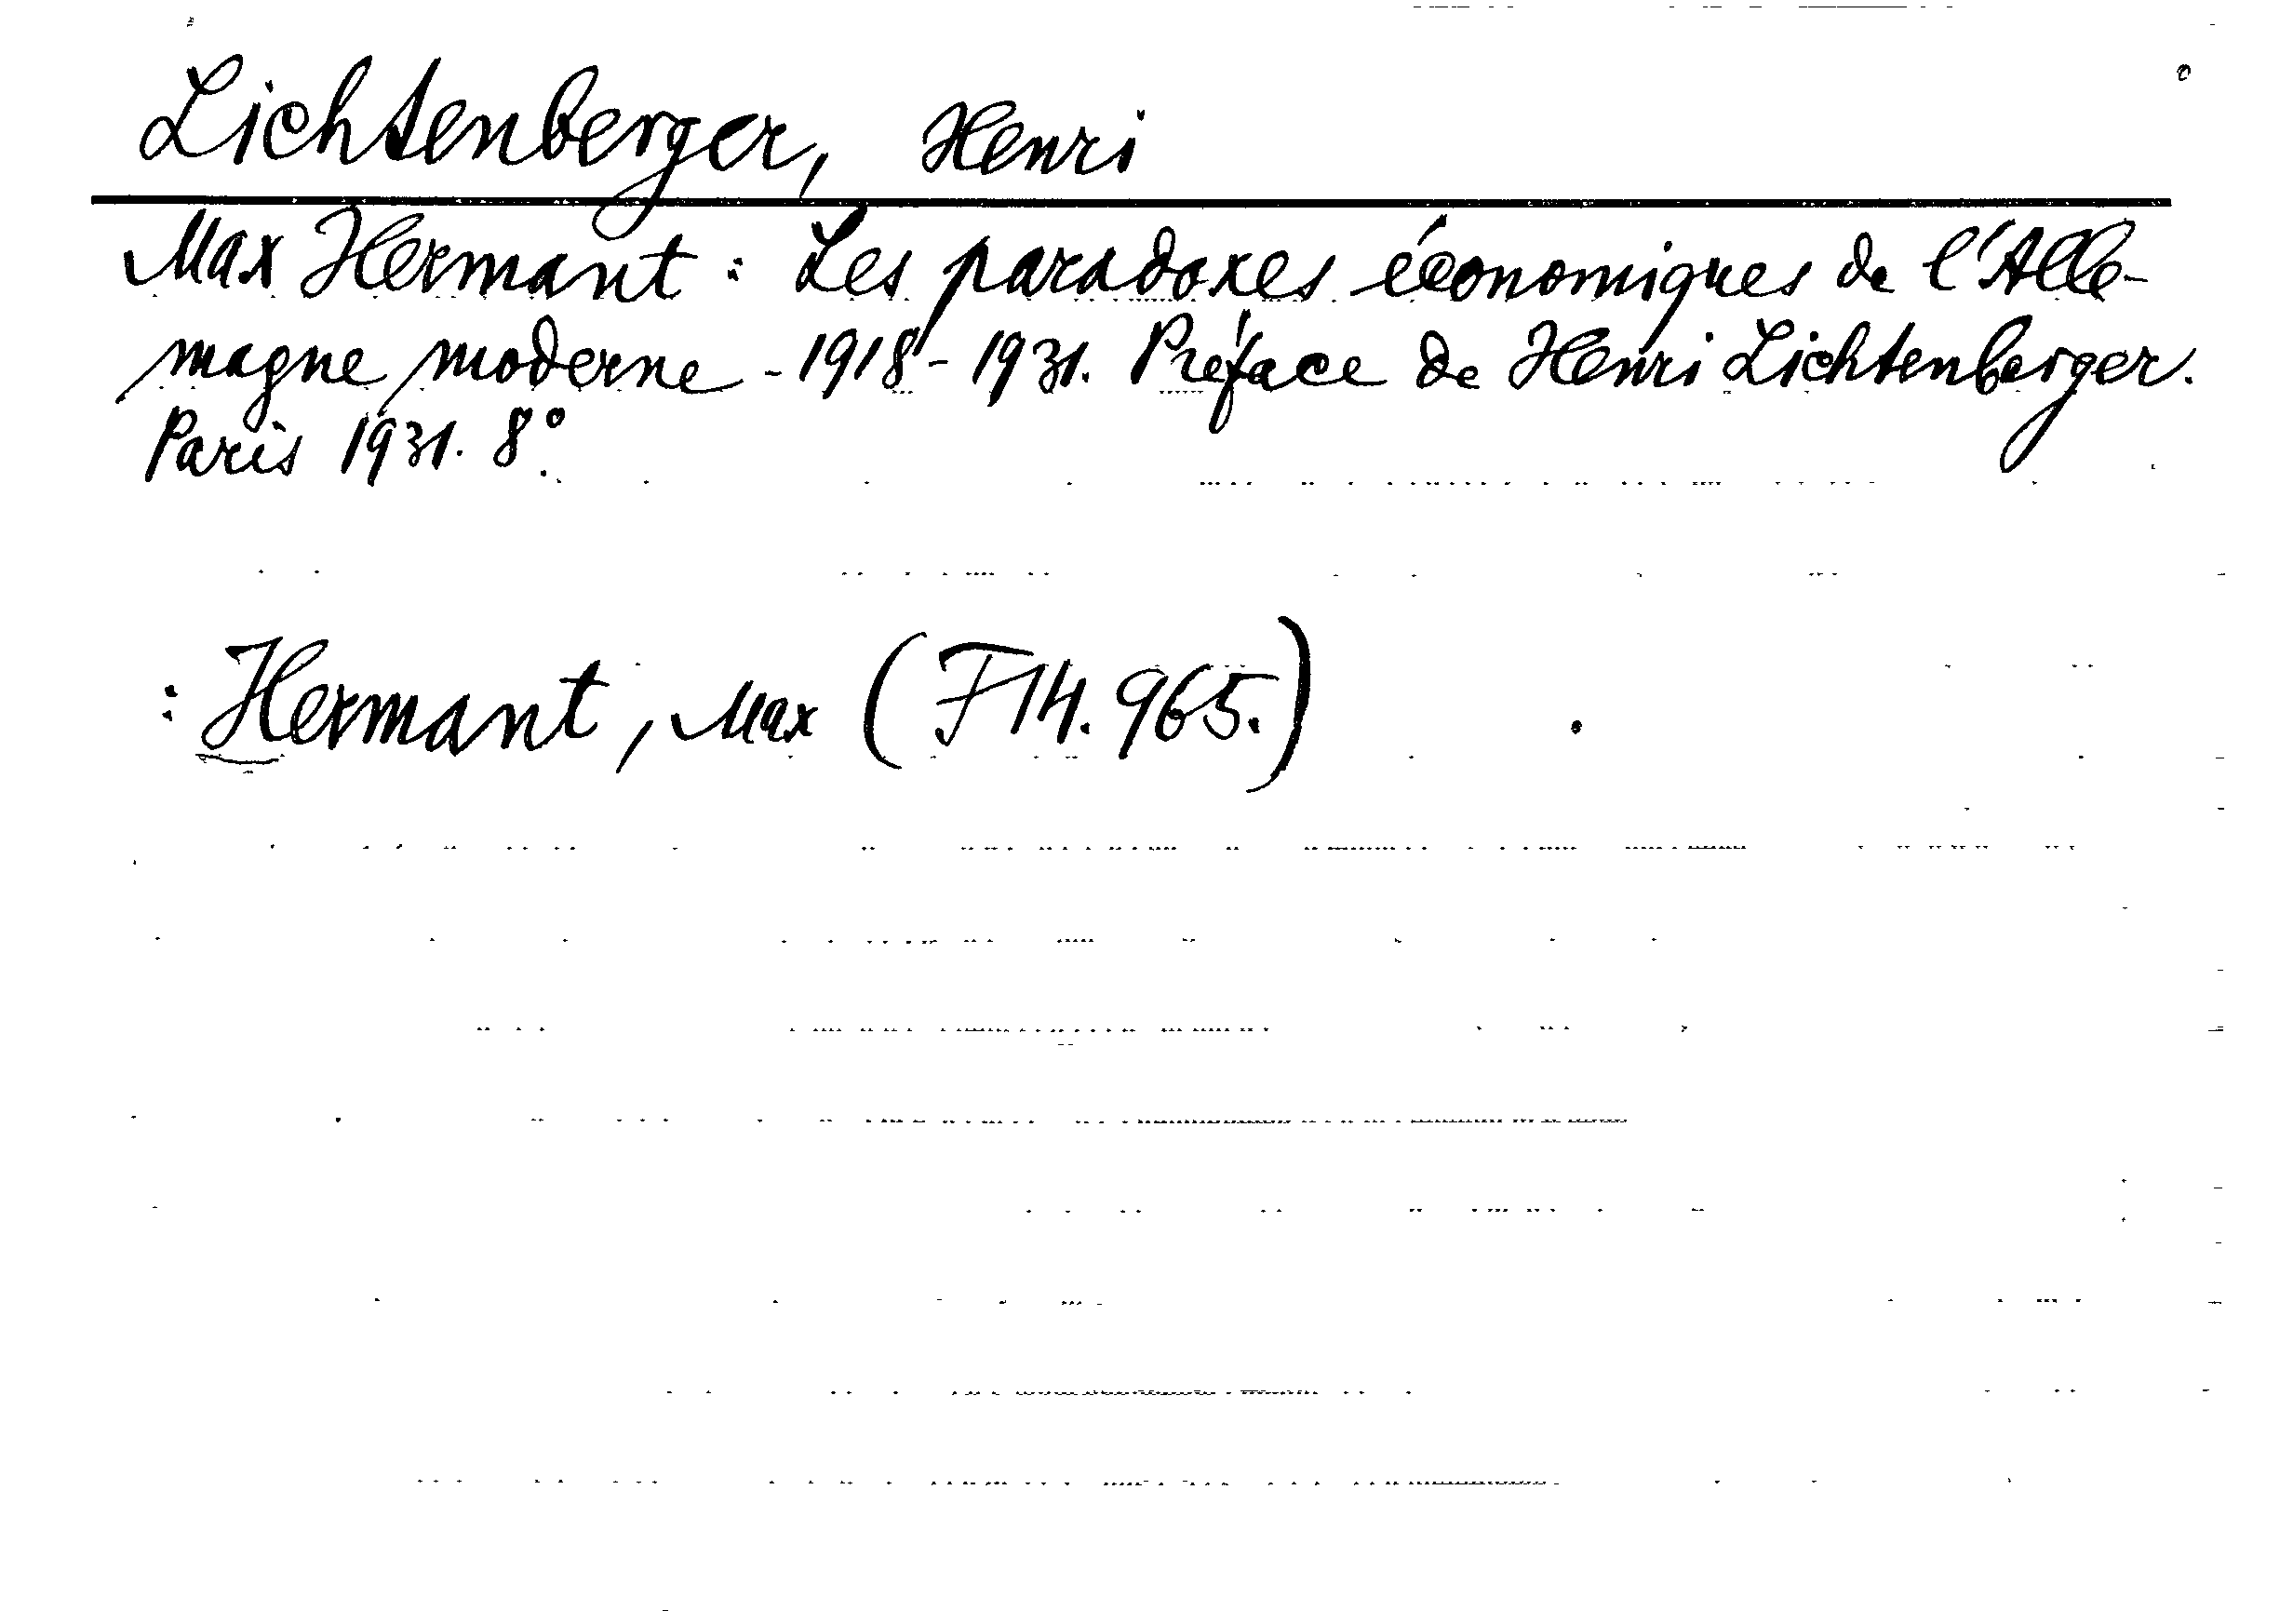 Lichtenberger, Henri
Max Hermant : Les paradoxes économiques de l'Alle-
magne moderne - 1918 - 1931. Préface de Henri Lichtenberger.
Paris 1931. 8°.
: Hermant, Max (F 14.965.)